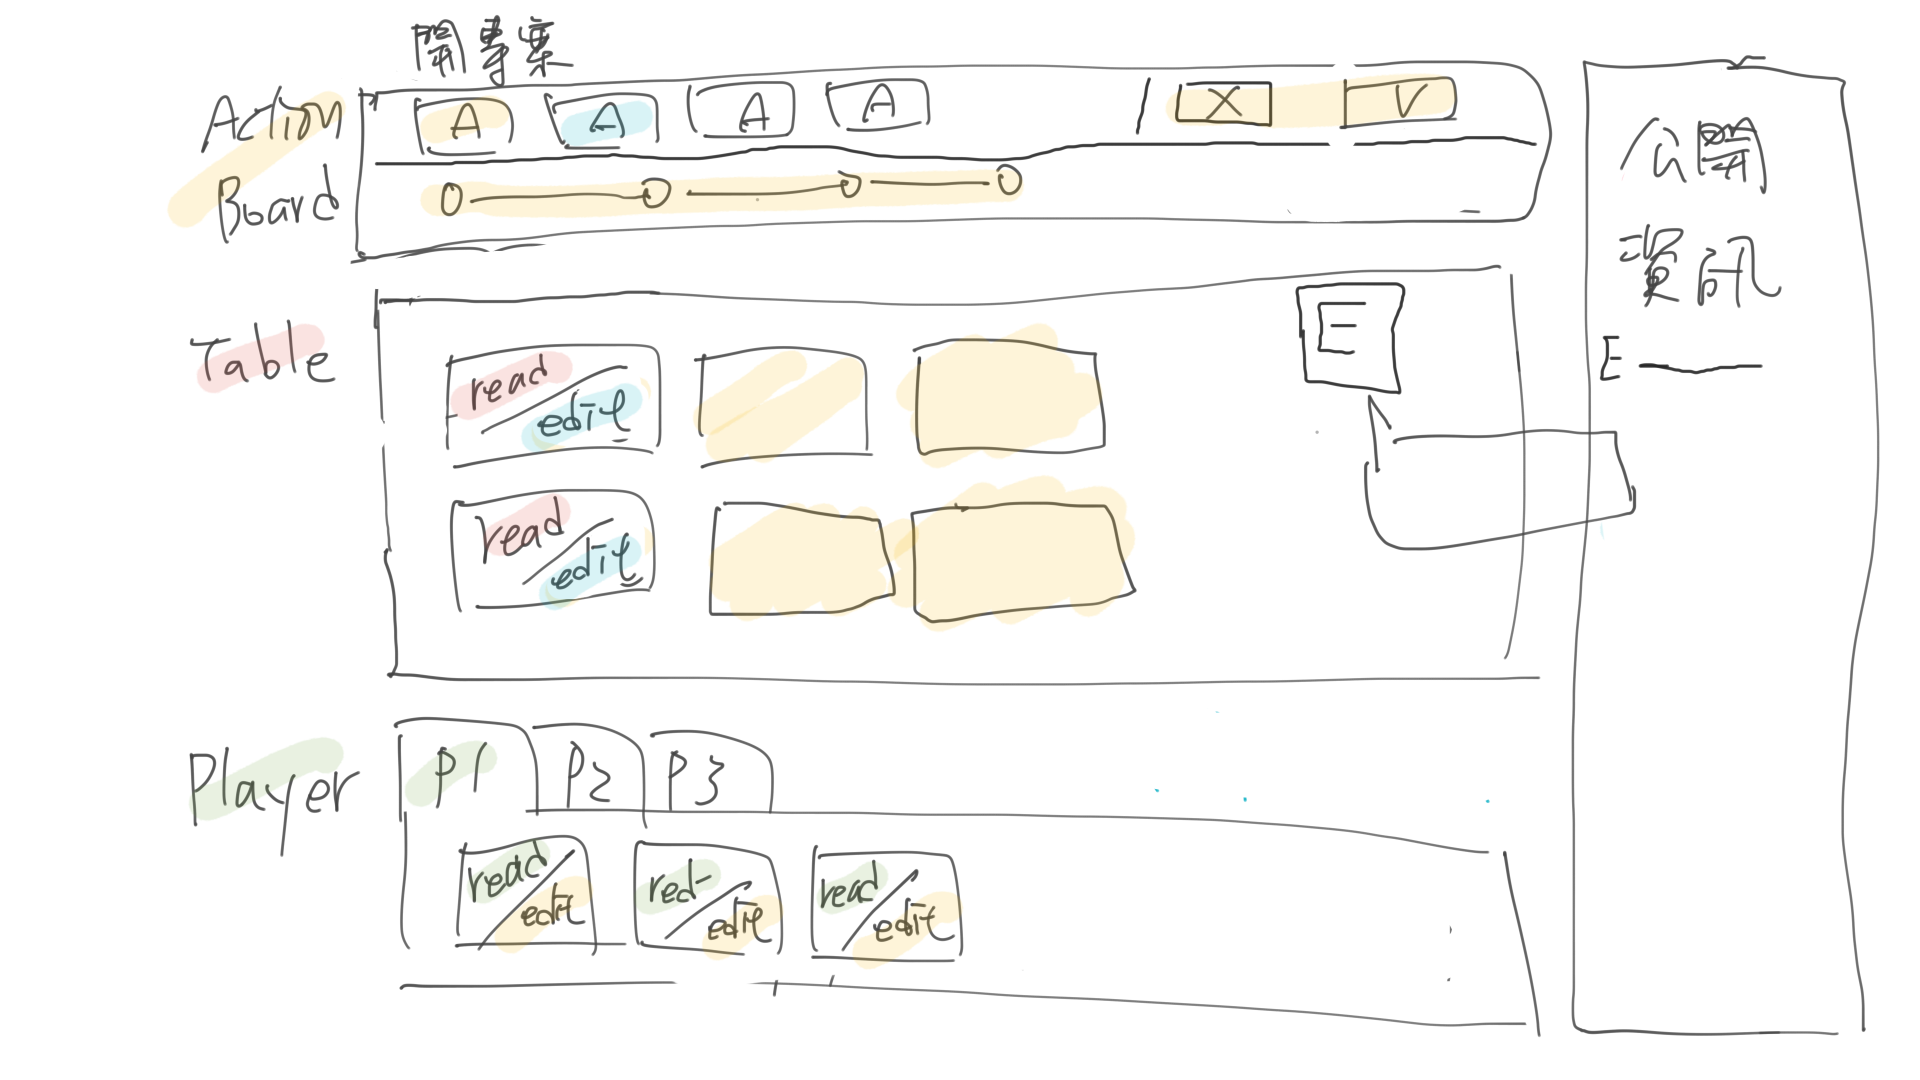 開專案
Action
Board
A A A A X V
公開
資訊
E
Table
read/edit
E
read/edit
Player
P1 P2 P3
read/edit red-/edit read/edit